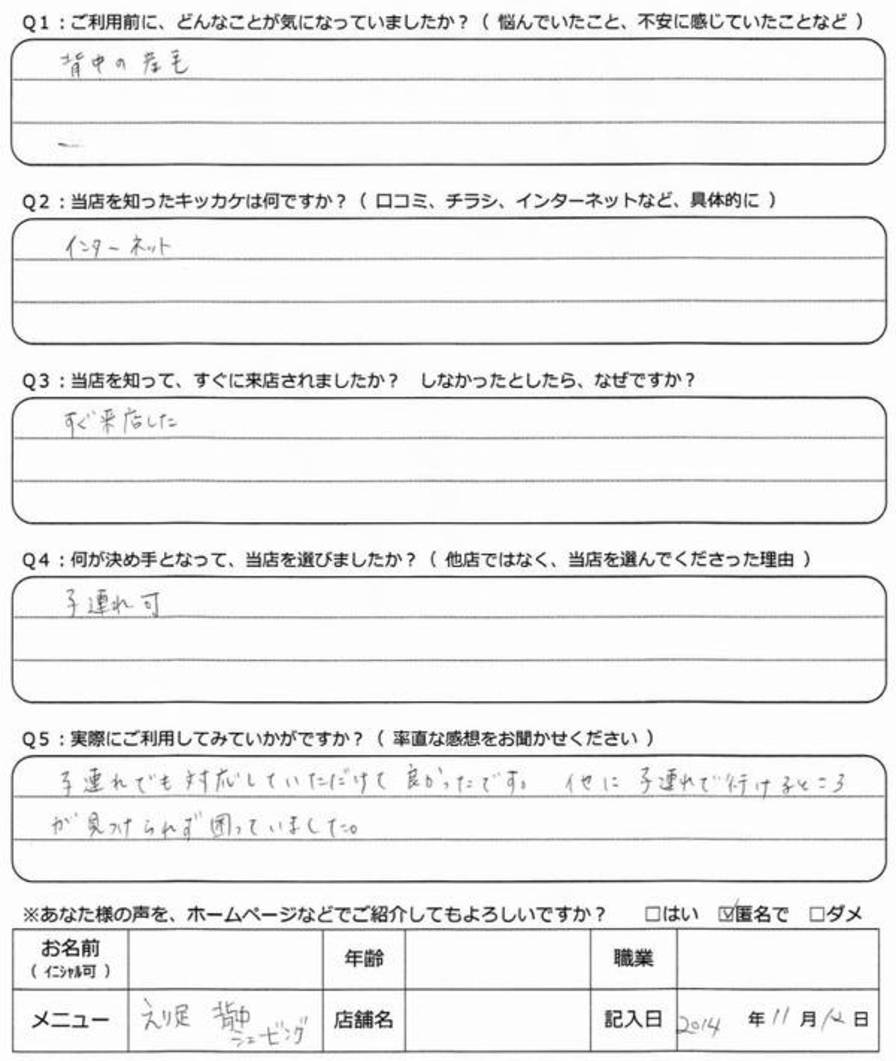 Q1：ご利用前に、どんなことが気になっていましたか？（ 悩んでいたこと、不安に感じていたことなど ）
背中の産毛
Q2：当店を知ったキッカケは何ですか？（ 口コミ、チラシ、インターネットなど、具体的に ）
インターネット
Q3：当店を知って、すぐに来店されましたか？　しなかったとしたら、なぜですか？
すぐ来店した
Q4：何が決め手となって、当店を選びましたか？（ 他店ではなく、当店を選んでくださった理由 ）
子連れ可
Q5：実際にご利用してみていかがですか？（ 率直な感想をお聞かせください ）
子連れでも対応していただけて良かったです。 他に子連れで行けるところ
が見つけられず困っていました。
※あなた様の声を、ホームページなどでご紹介してもよろしいですか？　□はい　☑匿名で　□ダメ
お名前　年齢　職業
（ イニシャル可 ）
メニュー　えり足 背中　店舗名　記入日 2014 年 11 月 12 日
シェービング